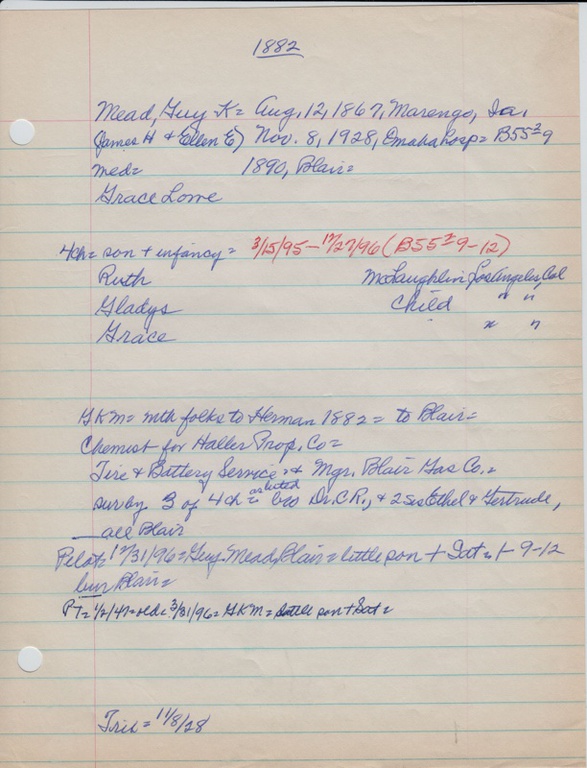 1882
Mead, Guy K = Aug. 12, 1867, Marengo, Ia.
(James H & Ellen E) Nov. 8, 1928, Omaha hosp = B55 2/2 9
med = 1890, Blair =
Grace Lowe
4ch = son + infancy = 3/15/95 - 12/27/96 (B55 2/2 9-12)
Ruth McLaughlin Los Angeles, Cal
Gladys Child " "
Grace " "
GKM = with folks to Herman 1882 = to Blair =
Chemist for Haller Prop. Co =
Tire & Battery Service = & Mgr. Blair Gas Co. =
sur by 3 of 4 ch = as listed bro Dr. C R., & 2 sis Ethel & Gertrude,
- all Blair
Pilot = 12/31/96 = Guy Mead, Blair = little son + Sat = 9-12
bur Blair =
PT = 1/2/47 = old = 3/31/96 = GKM = little son + Sat =
Trib = 11/8/28